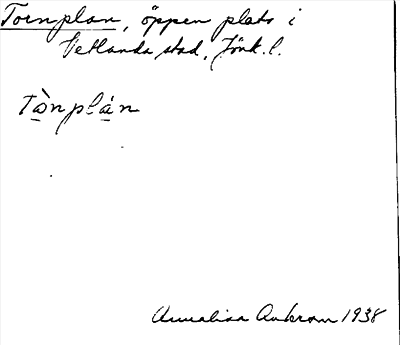 Tornplan, öppen plats i
Vetlanda stad, Jönk. l.
Tὰnplán
Annalisa 1938